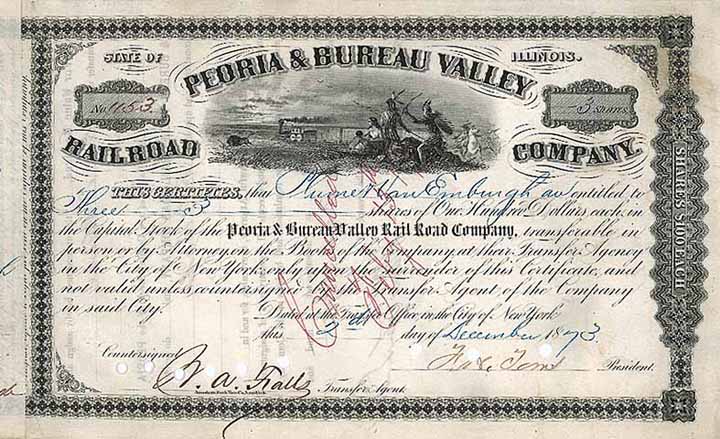 STATE OF ILLINOIS.
PEORIA & BUREAU VALLEY
No. 1153
3 Shares
RAILROAD COMPANY.
THIS CERTIFIES, that Van Emburgh are entitled to
Three 3 shares of One Hundred Dollars each, in
the Capital Stock of the Peoria & Bureau Valley Rail Road Company, transferable in
person or by Attorney on the Books of the Company, at their Transfer Agency
in the City of New York, only upon the surrender of this Certificate, and
not valid unless countersigned by the Transfer Agent of the Company
in said City.
Dated at the Transfer Office in the City of New York
this day of December 1873.
Countersigned
President.
Transfer Agent.
SHARES $100 EACH
Cancelled